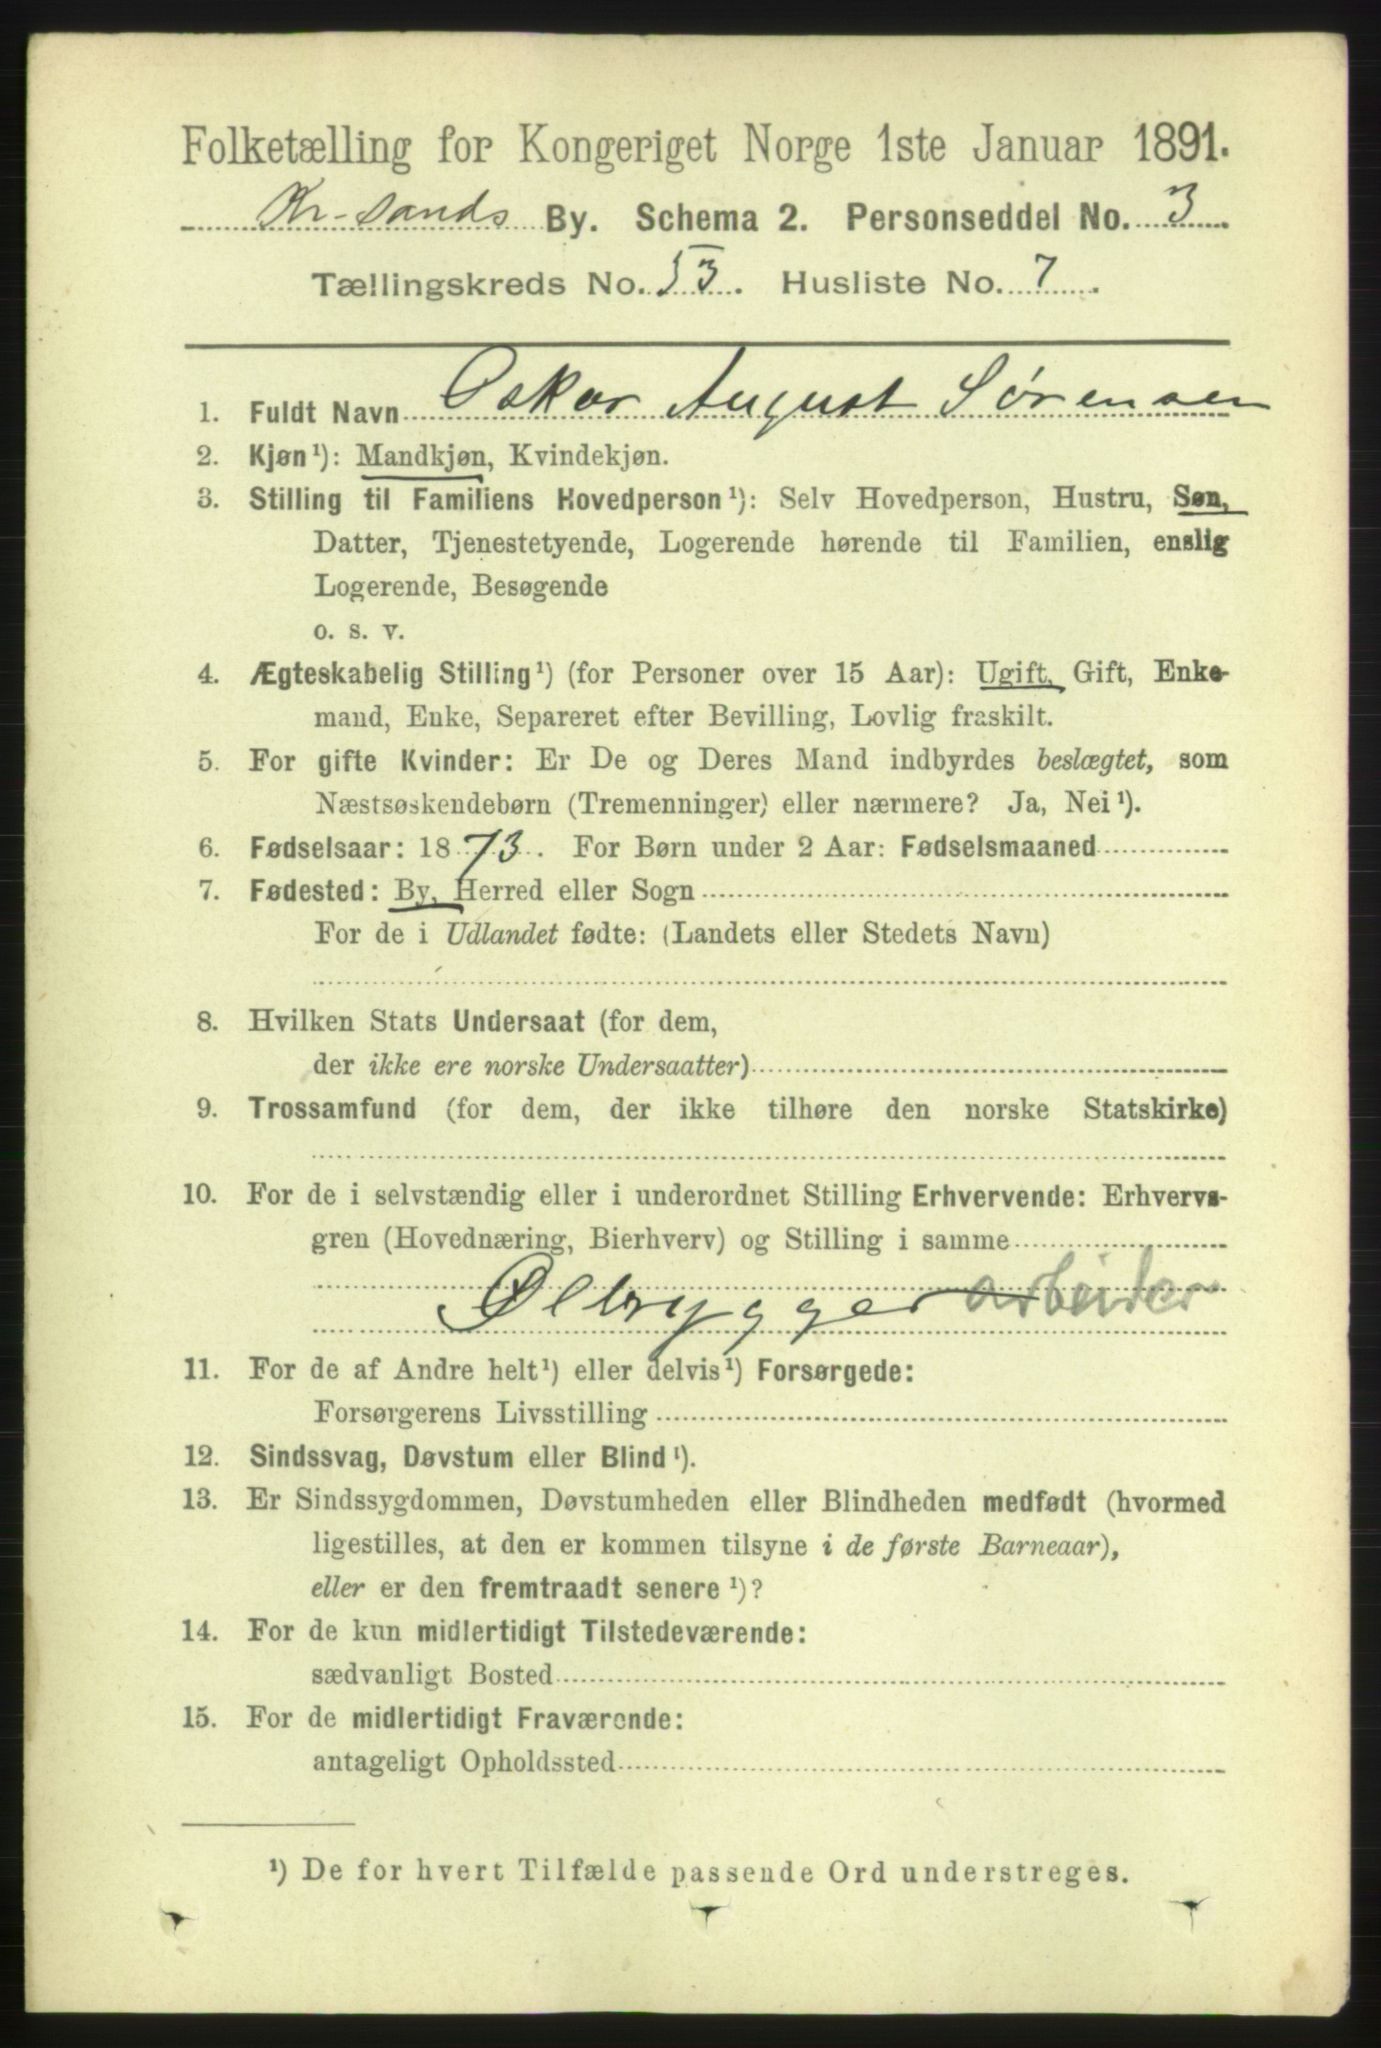 Folketælling for Kongeriget Norge 1ste Januar 1891.
Kr-sands By. Schema 2. Personseddel No. 3
Tællingskreds No. 53. Husliste No. 7
1. Fuldt Navn Oskar August Sørensen
2. Kjøn¹): Mandkjøn, Kvindekjøn.
3. Stilling til Familiens Hovedperson¹): Selv Hovedperson, Hustru, Søn,
Datter, Tjenestetyende, Logerende hørende til Familien, enslig
Logerende, Besøgende
o. s. v.
4. Ægteskabelig Stilling¹) (for Personer over 15 Aar): Ugift, Gift, Enke-
mand, Enke, Separeret efter Bevilling, Lovlig fraskilt.
5. For gifte Kvinder: Er De og Deres Mand indbyrdes beslægtet, som
Næstsøskendebørn (Tremenninger) eller nærmere? Ja, Nei¹).
6. Fødselsaar: 1873. For Børn under 2 Aar: Fødselsmaaned
7. Fødested: By, Herred eller Sogn
For de i Udlandet fødte: (Landets eller Stedets Navn)
8. Hvilken Stats Undersaat (for dem,
der ikke ere norske Undersaatter)
9. Trossamfund (for dem, der ikke tilhøre den norske Statskirke)
10. For de i selvstændig eller i underordnet Stilling Erhvervende: Erhvervs-
gren (Hovednæring, Bierhverv) og Stilling i samme
Ølbrygger arbeider
11. For de af Andre helt¹) eller delvis¹) Forsørgede:
Forsørgerens Livsstilling
12. Sindssvag, Døvstum eller Blind¹).
13. Er Sindssygdommen, Døvstumheden eller Blindheden medfødt (hvormed
ligestilles, at den er kommen tilsyne i de første Barneaar),
eller er den fremtraadt senere¹)?
14. For de kun midlertidigt Tilstedeværende:
sædvanligt Bosted
15. For de midlertidigt Fraværende:
antageligt Opholdssted
¹) De for hvert Tilfælde passende Ord understreges.